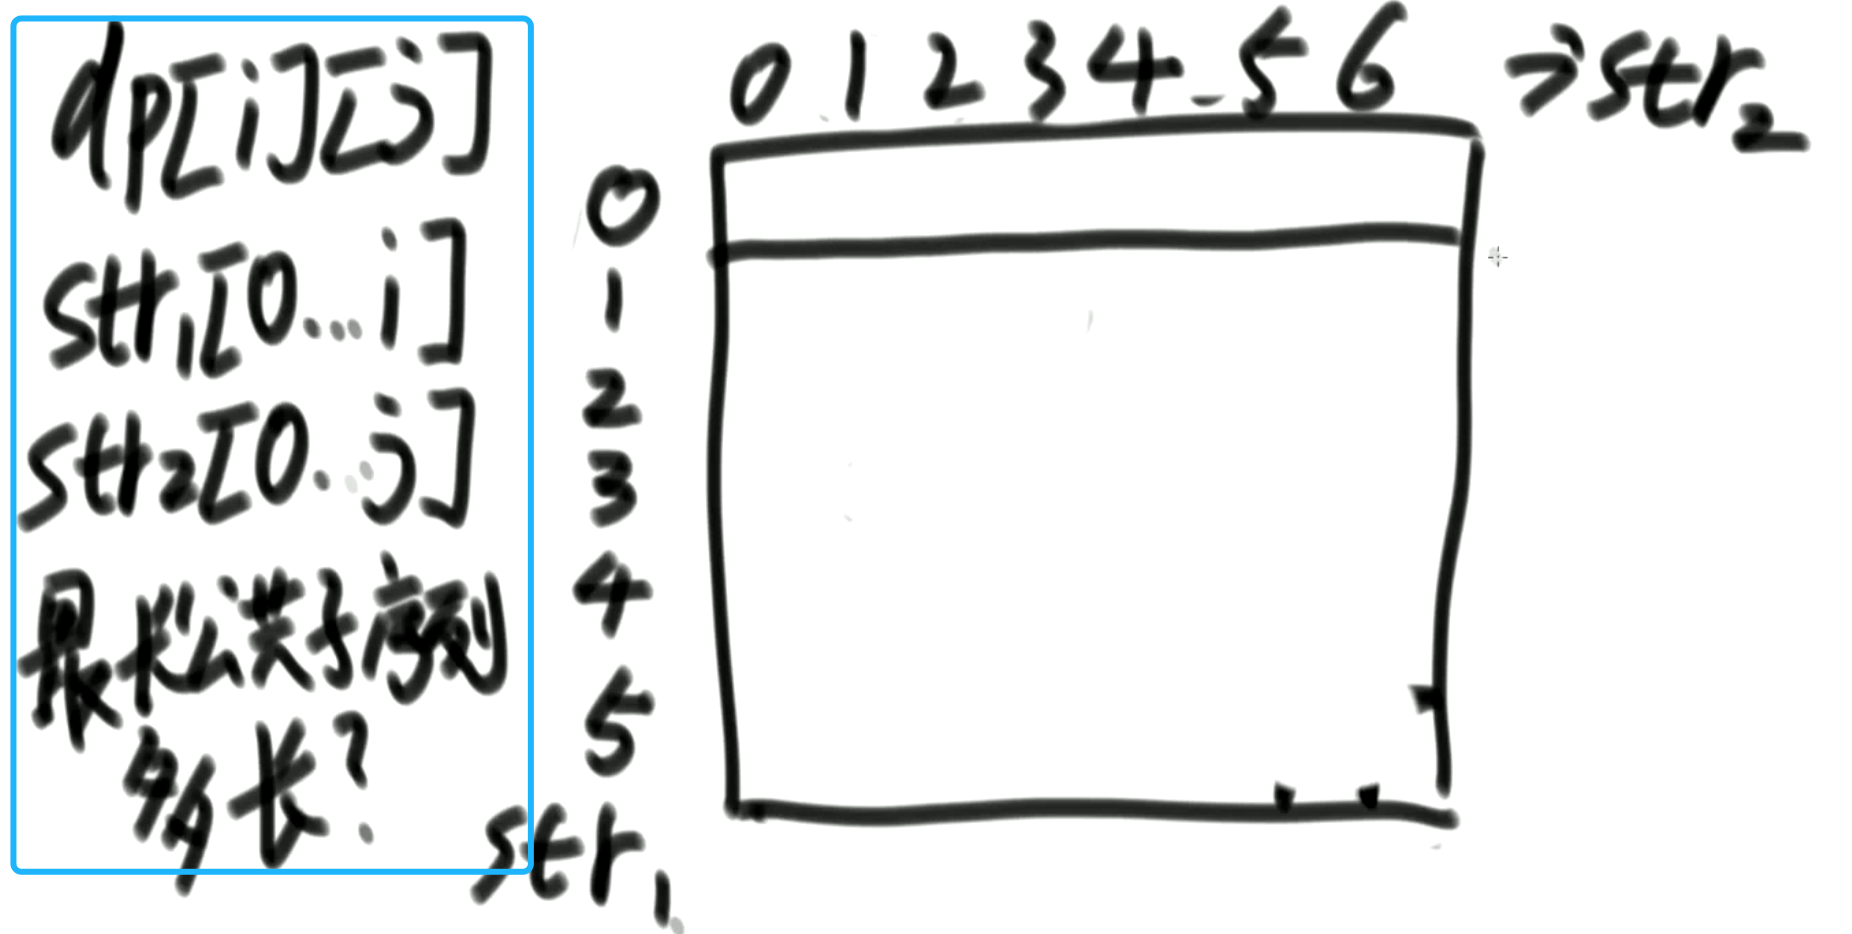 dp[i][j]
str1[0...i]
str2[0...j]
最长公共子序列
多长?
0 1 2 3 4 5 6 → str2
0
1
2
3
4
5
str1